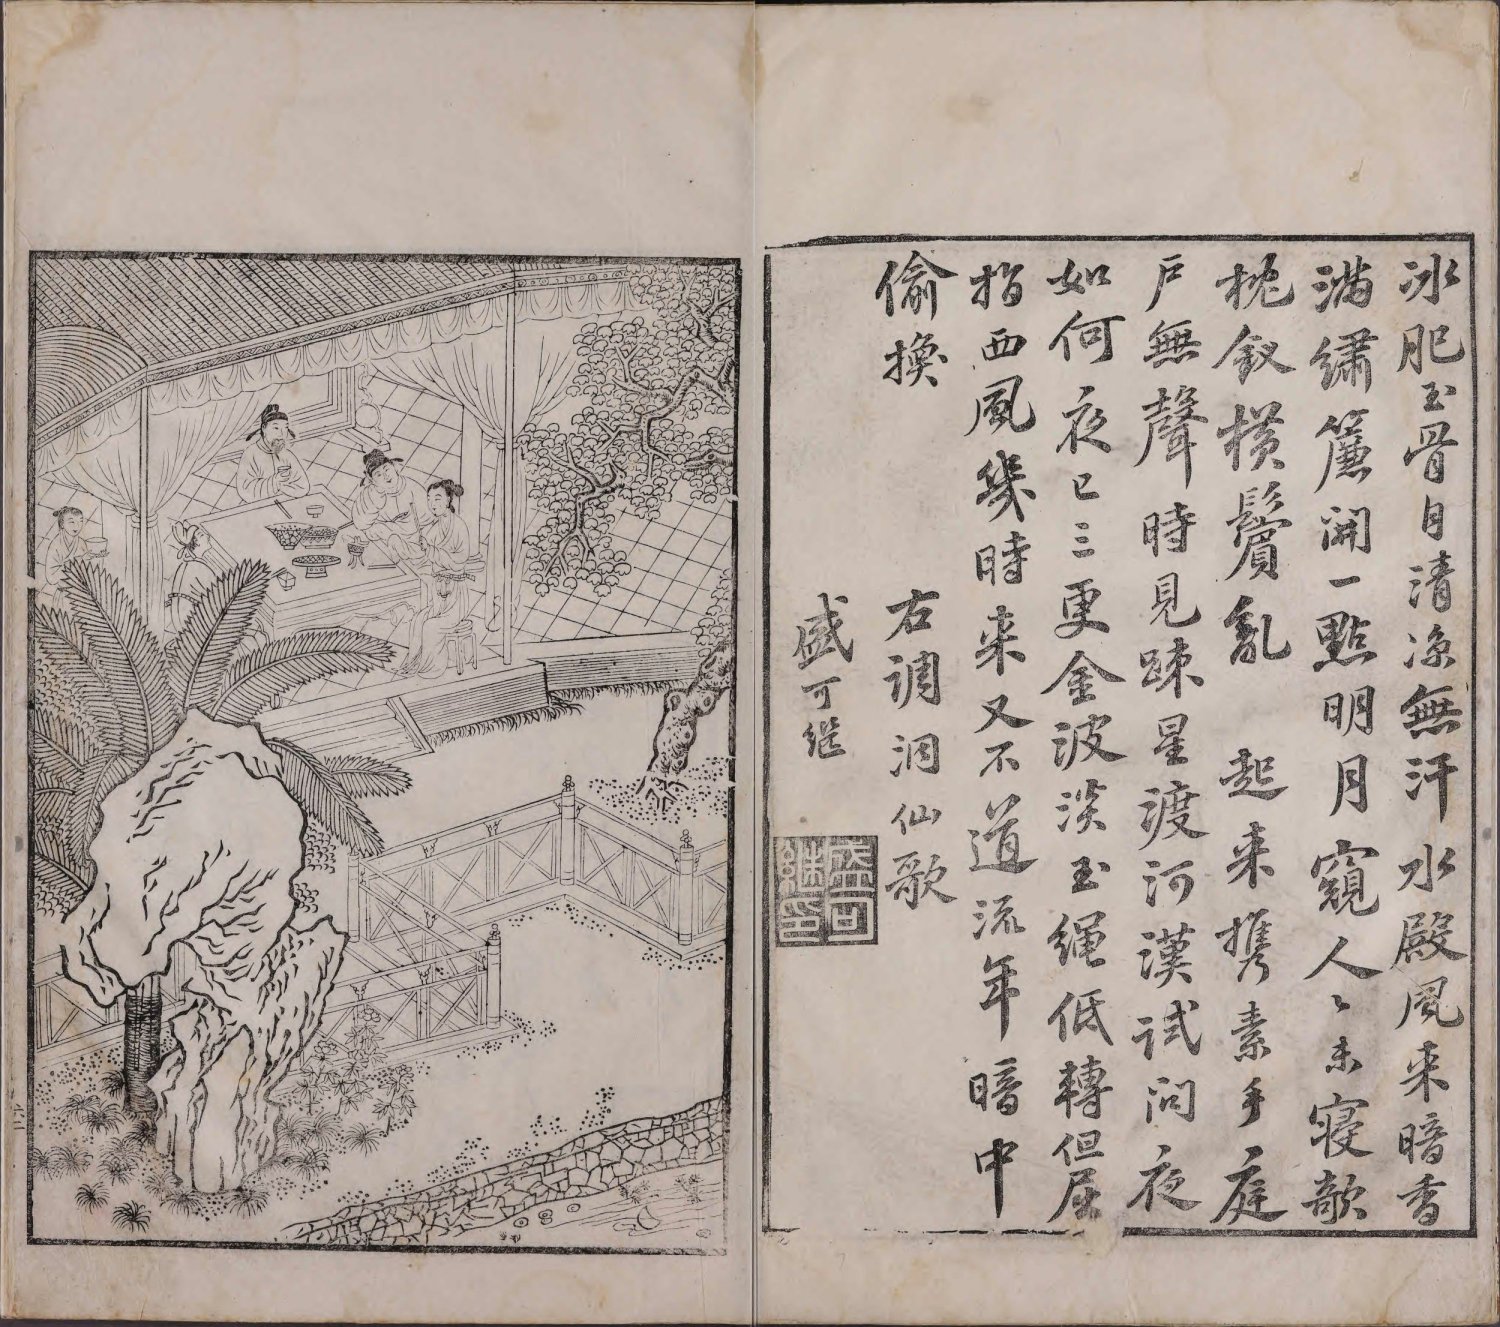 冰肥玉骨自清涼無汗水殿風来暗香
滿繡簾開一點明月窺人〻未寢欹
枕釵横鬢亂　起来携素手庭
戶無聲時見踈星渡河漢試问夜
如何夜已三更金波淡玉繩低轉但屈
指西風幾時来又不道流年暗中
偷換　右調洞仙歌
盛可继
盛可繼印